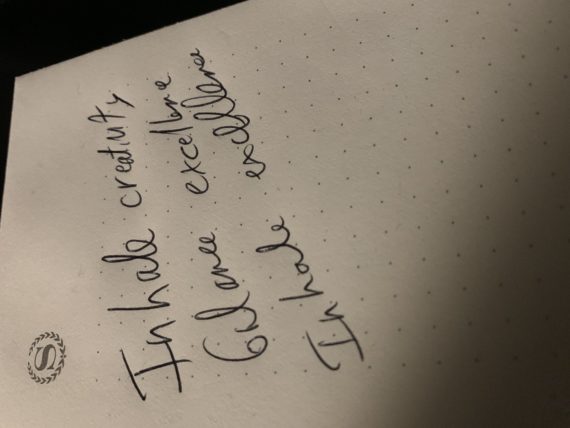 S
Inhale creativity
excellence
Inhale excellence